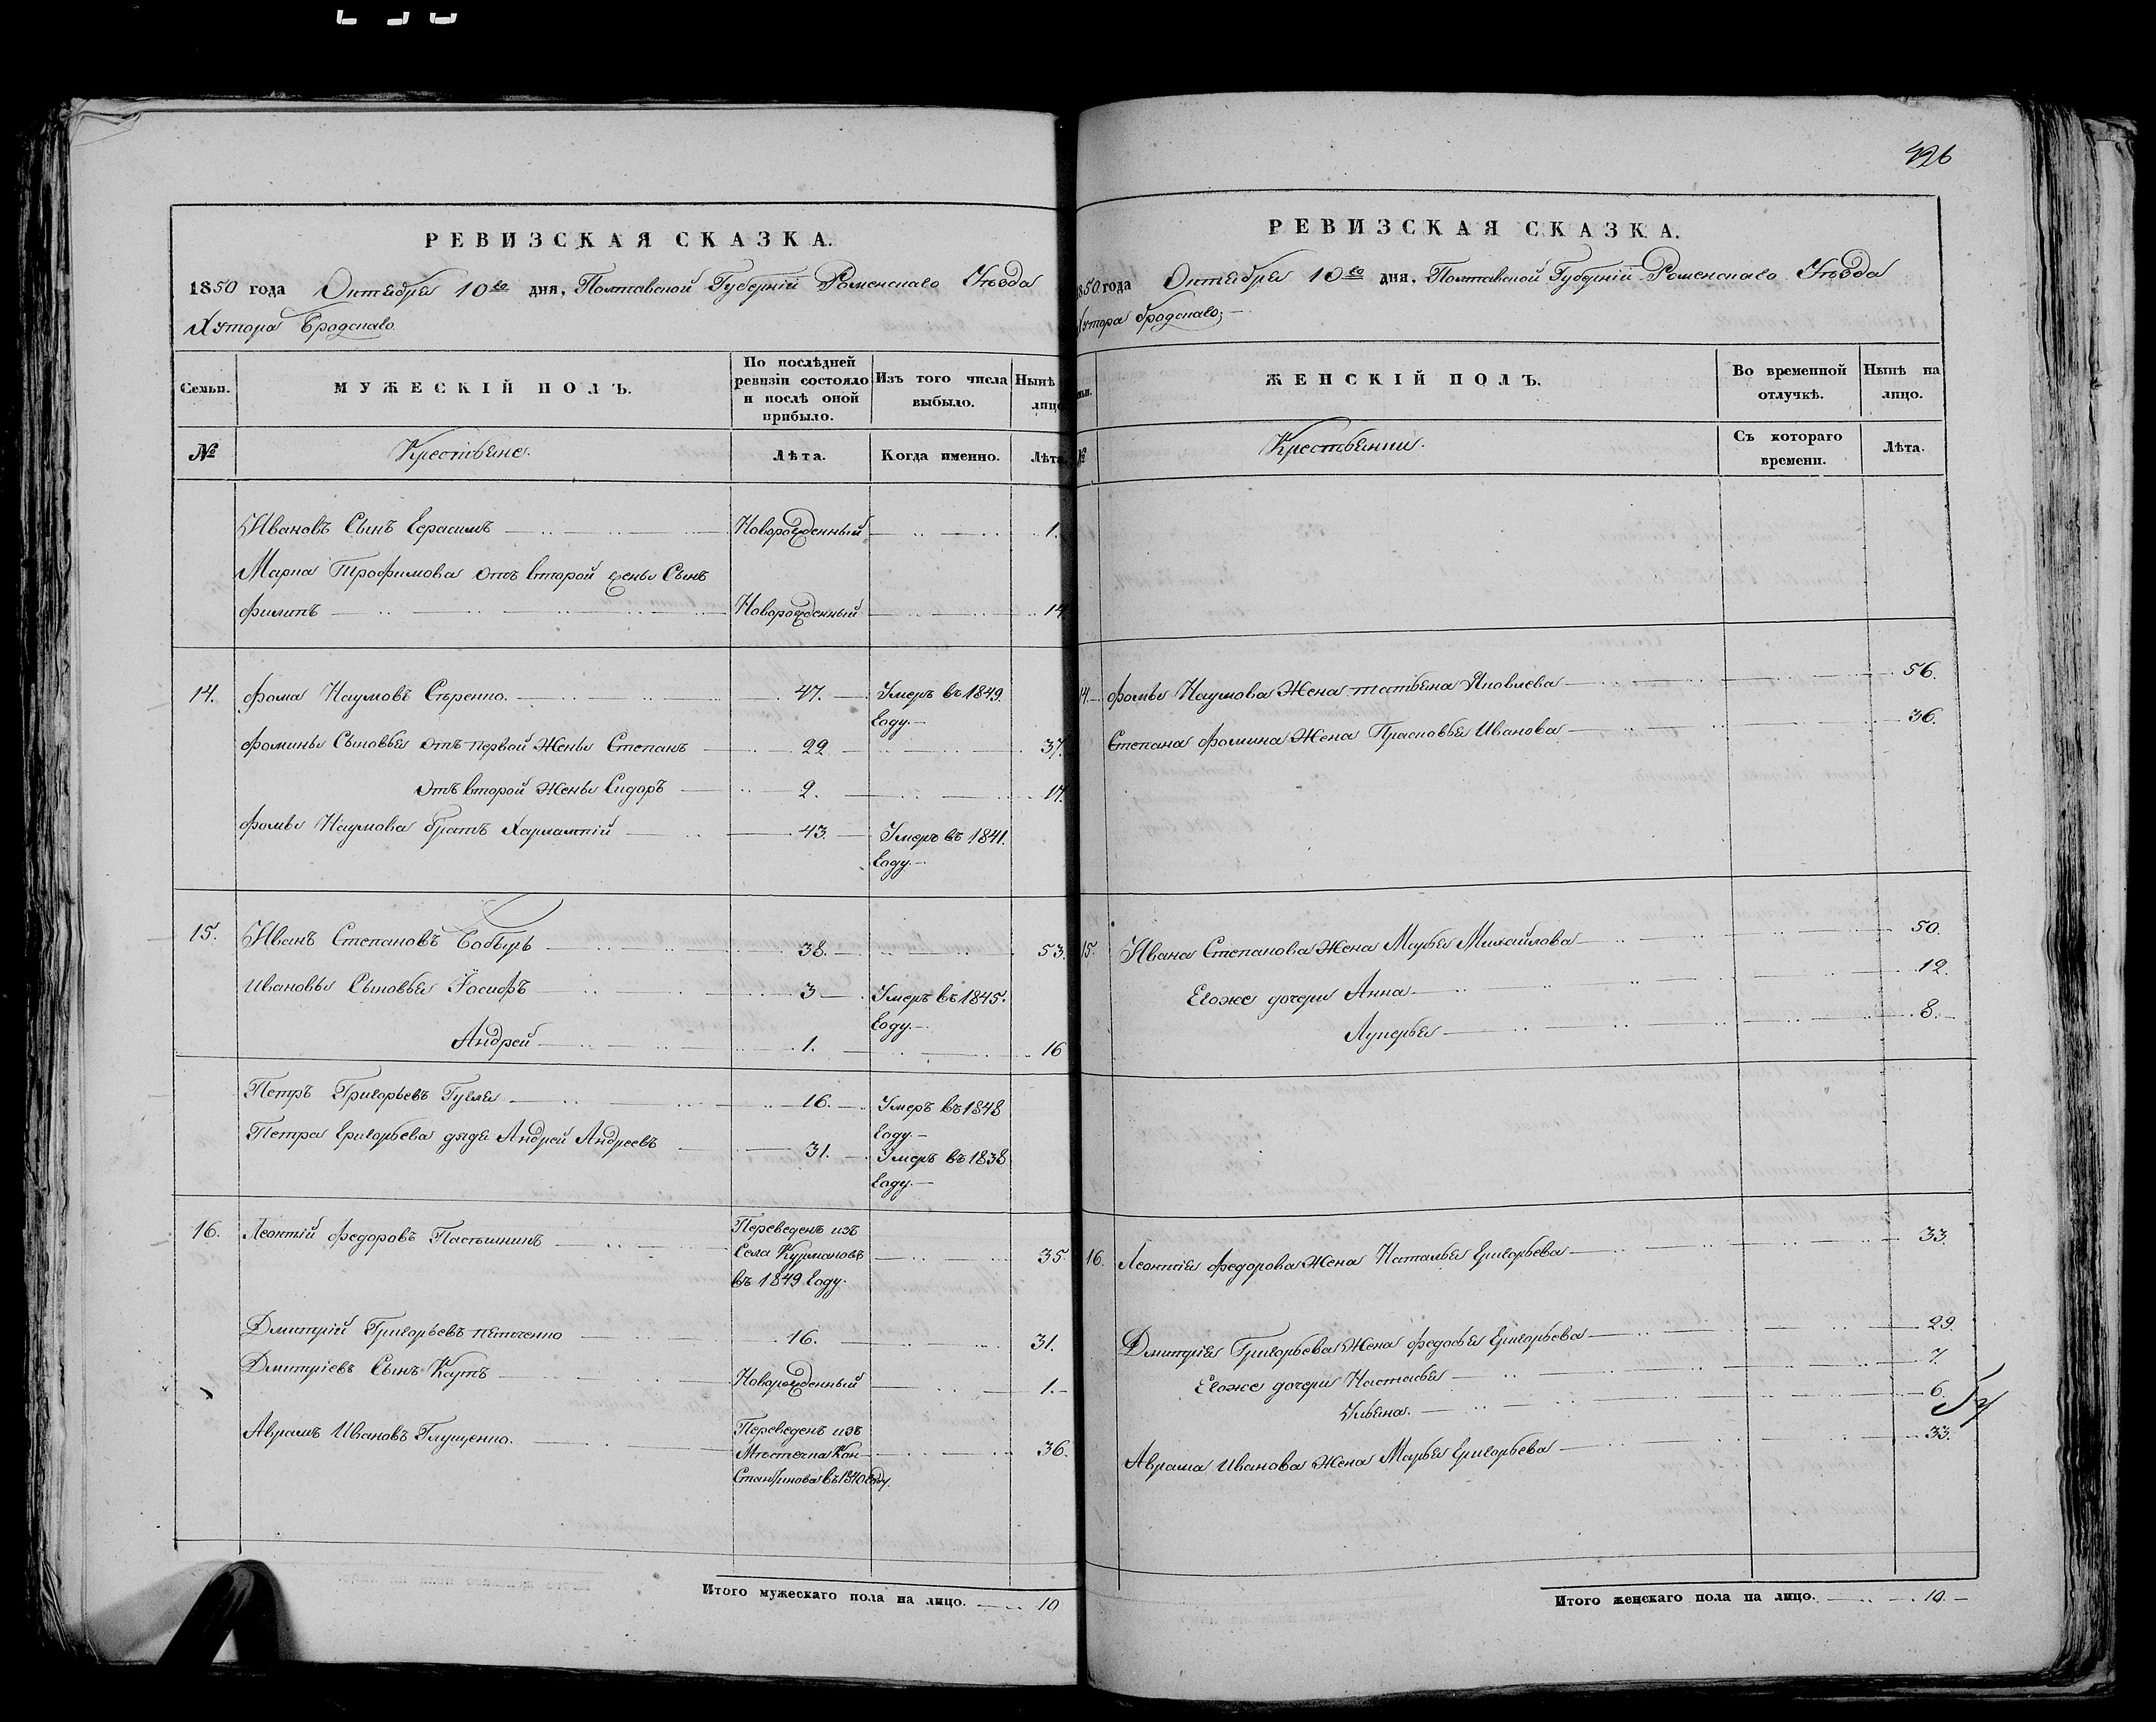 РЕВИЗСКАЯ СКАЗКА.
1850 года Октября 10го дня, Полтавской Губернiи Роменскаго Уѣзда
Хутора Бродскаго
Семьи.
МУЖЕСКIЙ ПОЛЪ.
По послѣдней ревизiи состояло и послѣ оной прибыло.
Изъ того числа выбыло.
Нынѣ лицо
№
Крестьяне.
Лѣта.
Когда именно.
Лѣта
Ивановъ Сынъ Герасимъ Новорожденный 1.
Марка Трофимова отъ второй жены Сынъ
Филипъ Новорожденный 14
14. Фома Наумовъ 47. Умеръ въ 1849.
году.
Фомины Сыновья отъ первой Жены Степанъ 22 37.
отъ второй Жены Сидоръ 2. 17.
Фомы Наумова братъ Харлампiй 43. Умеръ въ 1841.
году.
15. Иванъ Степановъ Бобырь 38. 53.
Ивановы Сыновья Iосифъ 3 Умеръ въ 1845.
году.
Андрей 1. 16
Петръ Григорьевъ Гугля 16. Умеръ въ 1848
году.
Петра Григорьева дядя Андрей Андреевъ 31. Умеръ въ 1838
году.
16. Леонтiй Федоровъ Переведенъ изъ
Села Курмановъ 35.
въ 1849 году.
Дмитрiй Григорьевъ 16. 31.
Дмитрiевъ Сынъ Новорожденный 1.
Аврамъ Ивановъ Глущенко. Переведенъ изъ
Мѣстечка Кон- 36.
стантинова въ 1840 году.
Итого мужескаго пола на лицо. 10
426
РЕВИЗСКАЯ СКАЗКА.
1850 года Октября 10го дня, Полтавской Губернiи Роменскаго Уѣзда
Хутора бродскаго;
ЖЕНСКIЙ ПОЛЪ.
Во временной отлучкѣ.
Нынѣ на лицо.
№
Крестьянки.
Съ котораго времени.
Лѣта.
14. Фомы Наумова Жена татьяна Яковлева 56.
Степана Фомина Жена Прасковья Иванова 36.
15. Ивана Степанова Жена Марья Михайлова 50.
Егоже дочери Анна 12.
Лукерья 8.
16. Леонтiя Федорова Жена Наталья Григорьева 33.
Дмитрiя Григорьева Жена Федосья Григорьева 29.
Егоже дочери Настасья 7.
Ульяна. 6.
Аврама Иванова Жена Марья Григорьева 33.
Итого женскаго пола на лицо. 10.